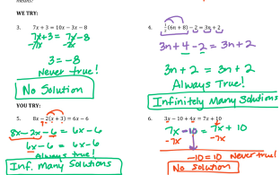 WE TRY:
3. 7x + 3 = 10x − 3x − 8
7x + 3 = 7x − 8
-7x -7x
3 = −8
Never true!
No Solution
4. ½(6n + 8) − 2 = 3n + 2
3n + 4 − 2 = 3n + 2
3n + 2 = 3n + 2
Always True!
Infinitely Many Solutions
YOU TRY:
5. 8x − 2(x + 3) = 6x − 6
8x − 2x − 6 = 6x − 6
6x − 6 = 6x − 6
Always true!
Inf. many Solutions
6. 3x − 10 + 4x = 7x + 10
7x − 10 = 7x + 10
-7x -7x
−10 = 10 Never true!
No Solution